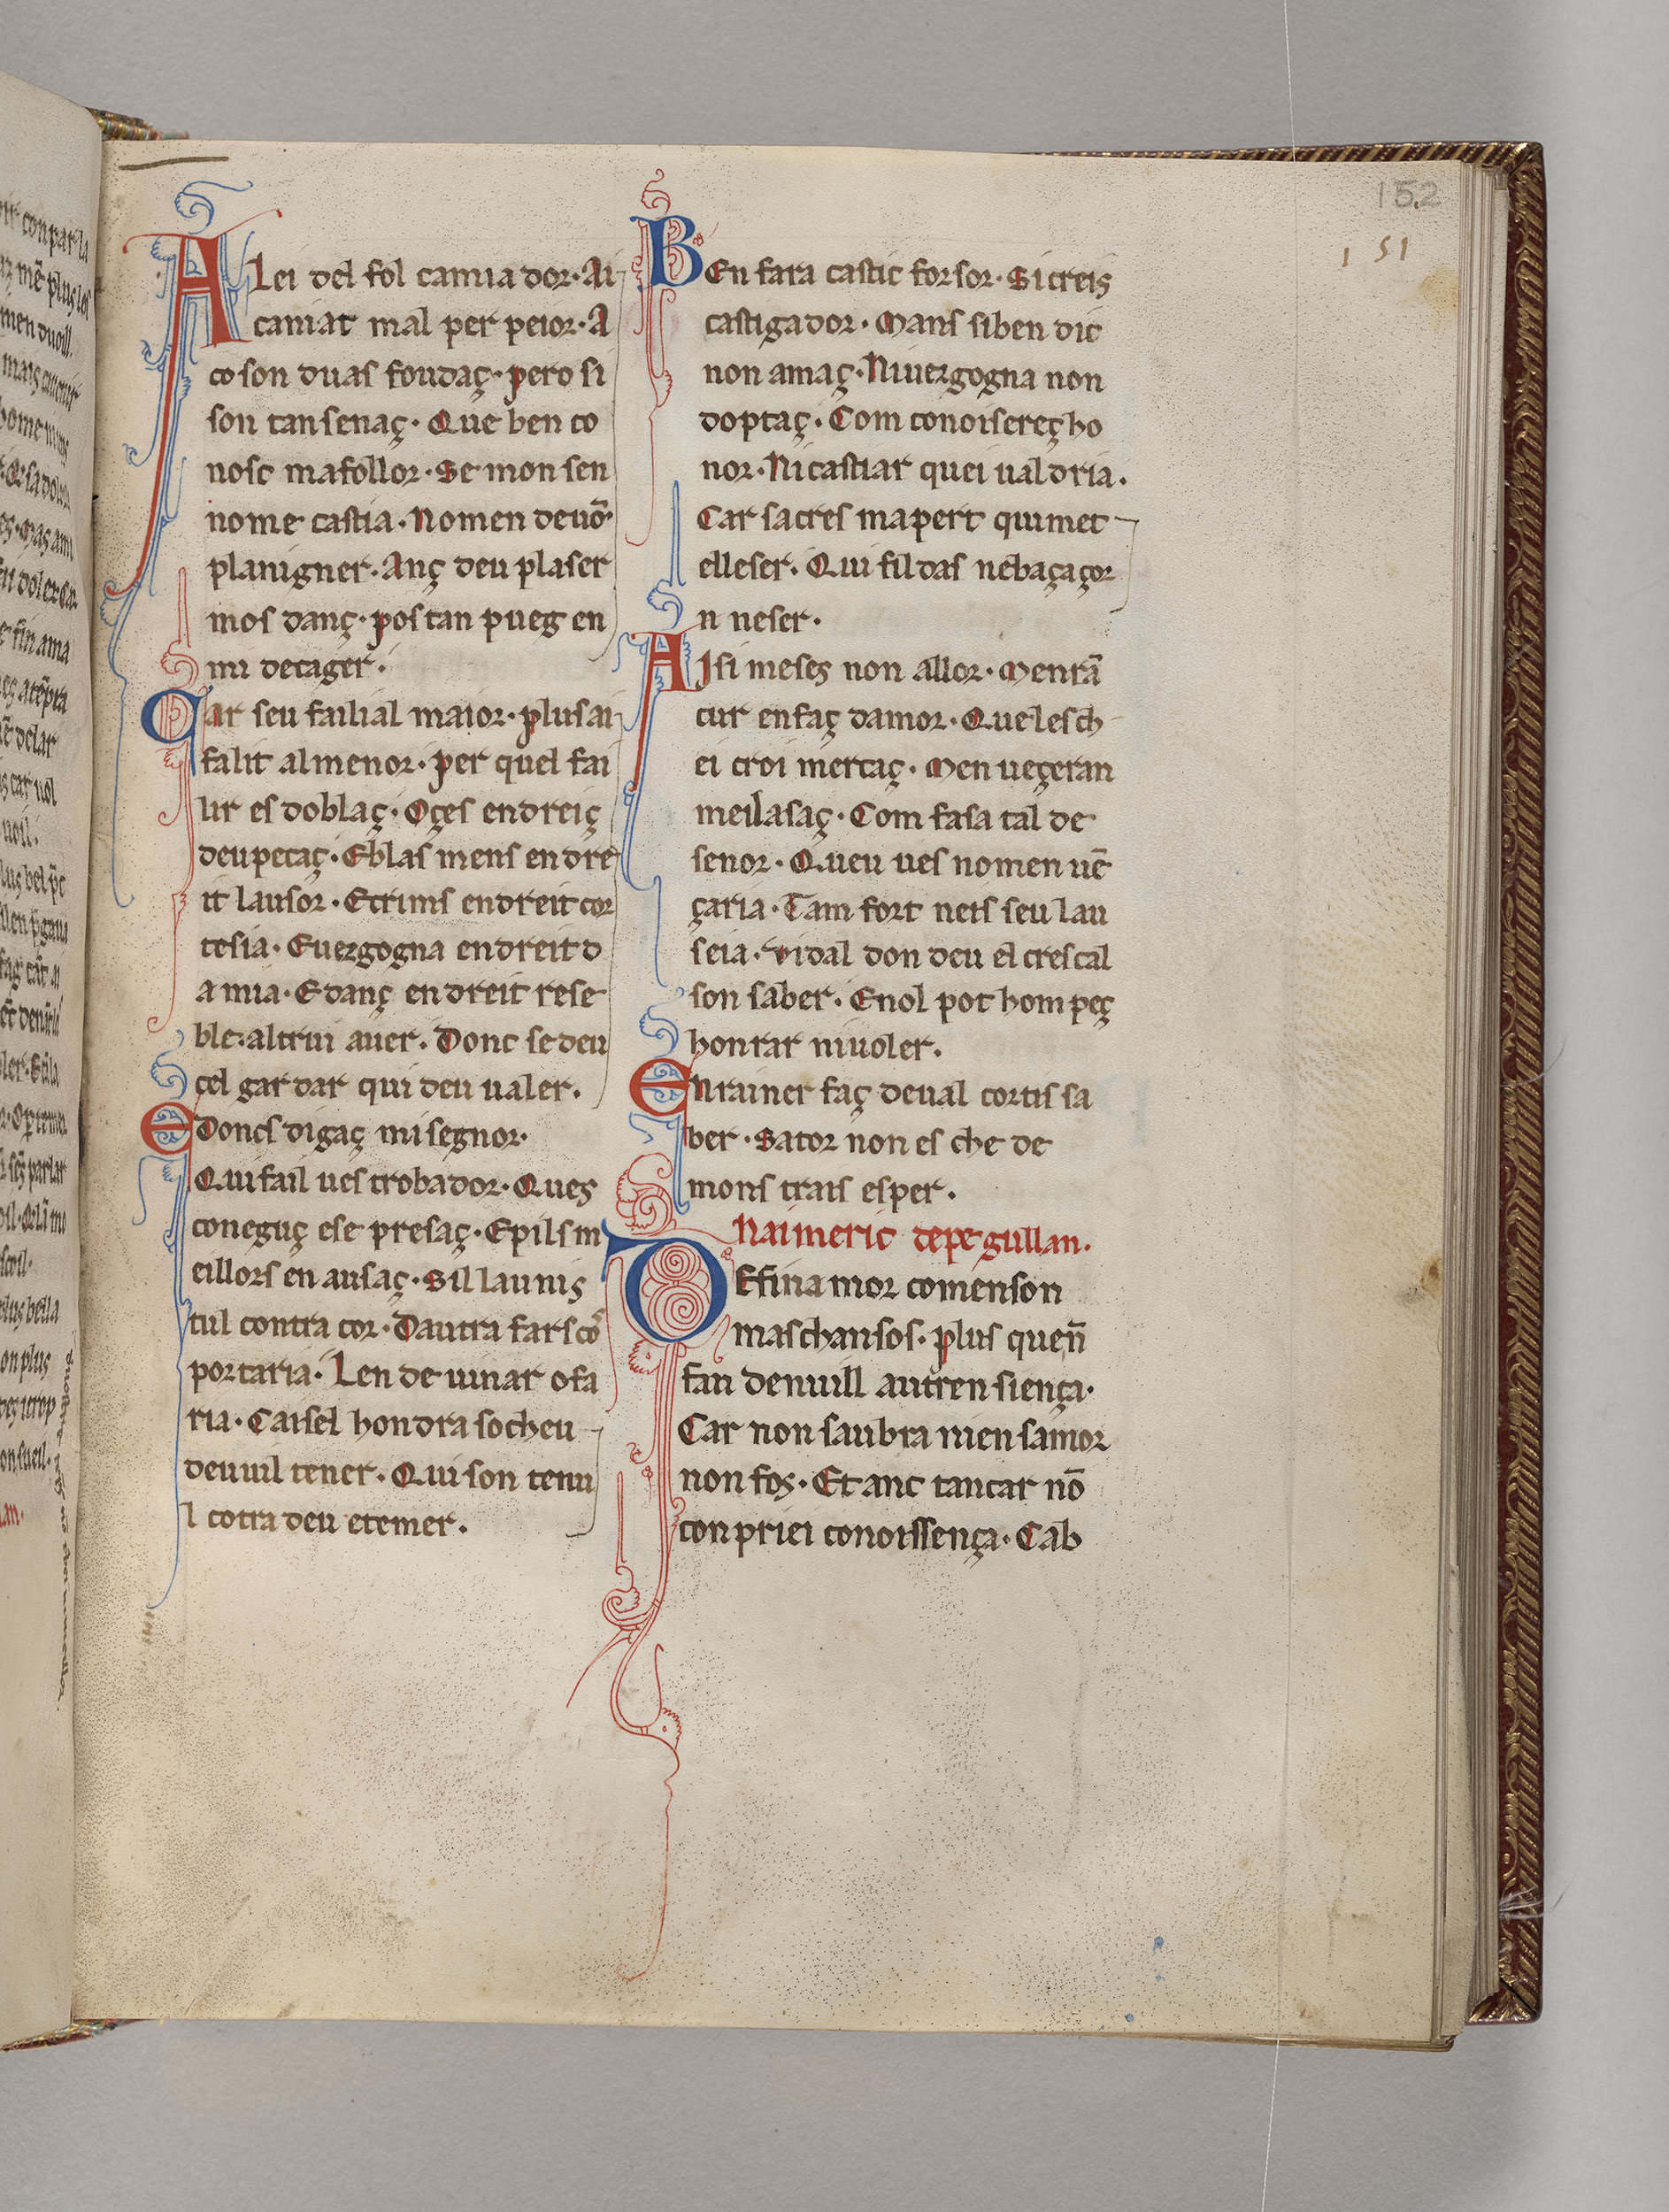 152
151
A Lei del fol camiador· Ai
camiat mal per peior· A
coson duas foudaç· pero si
son tan senaç· Que ben co
nosc mafollor· Se mon sen
nome castia· Nomen deuō·
planigner· Anç deu plaser
mos danç· pos tan pueg en
mi decager·
Car seu failial maior· plus ai
falit al menor· per quel fai
lir es doblaç· Oçes endreiç
deupecaç· Eblasmens endre
it lausor· Ecrims endreit cor
tesia· Euergogna endreit d
amia· Edanç endreit rese
ble·altrui auer· Donc sedeu
cel gardar qui deu ualer·
E Doncs digaç mi segnor·
Qui fail ues trobador· Ques
coneguç ese presaç· Epilsm
eillors en ausaç· Sil launis
tul contra cor· Dautra fars cō
portaria· Len de uinar ofa
ria· Caisel hondra socheu
deuuil tener· Qui son tenu
l cotra deu etemer·
B En fara castic forsor· Si creis
castigador· Mans siben dic
non amaç· Niuergogna non
doptaç· Com conoisereç ho
nor· Nicastiar quei ualdria·
Car sacres mapert quimet
elleser· Qui fildas nebaçaçor
n neser·
A Isi meses non allor· Menrā
cur enfaç damor· Quelesch
ei croi mercaç· Men ueçeran
meilasaç· Com fasa tal de
senor· Queu ues nomen uē
çaria· Tam fort neis seu lau
seia· Vidal don deu el crescal
son saber· Enol pot hom peç
honrar niuoler·
Enrainer faç deual cortis sa
ber· Sator non es che de
mons trais esper·
Naimeric depegullan·
D Efinamor comenson
maschansos· plus queñ
fan denuill autren siença·
Car non saubra nien samor
non fos· Et anc tancar nō
conpriei conoissença· Cab